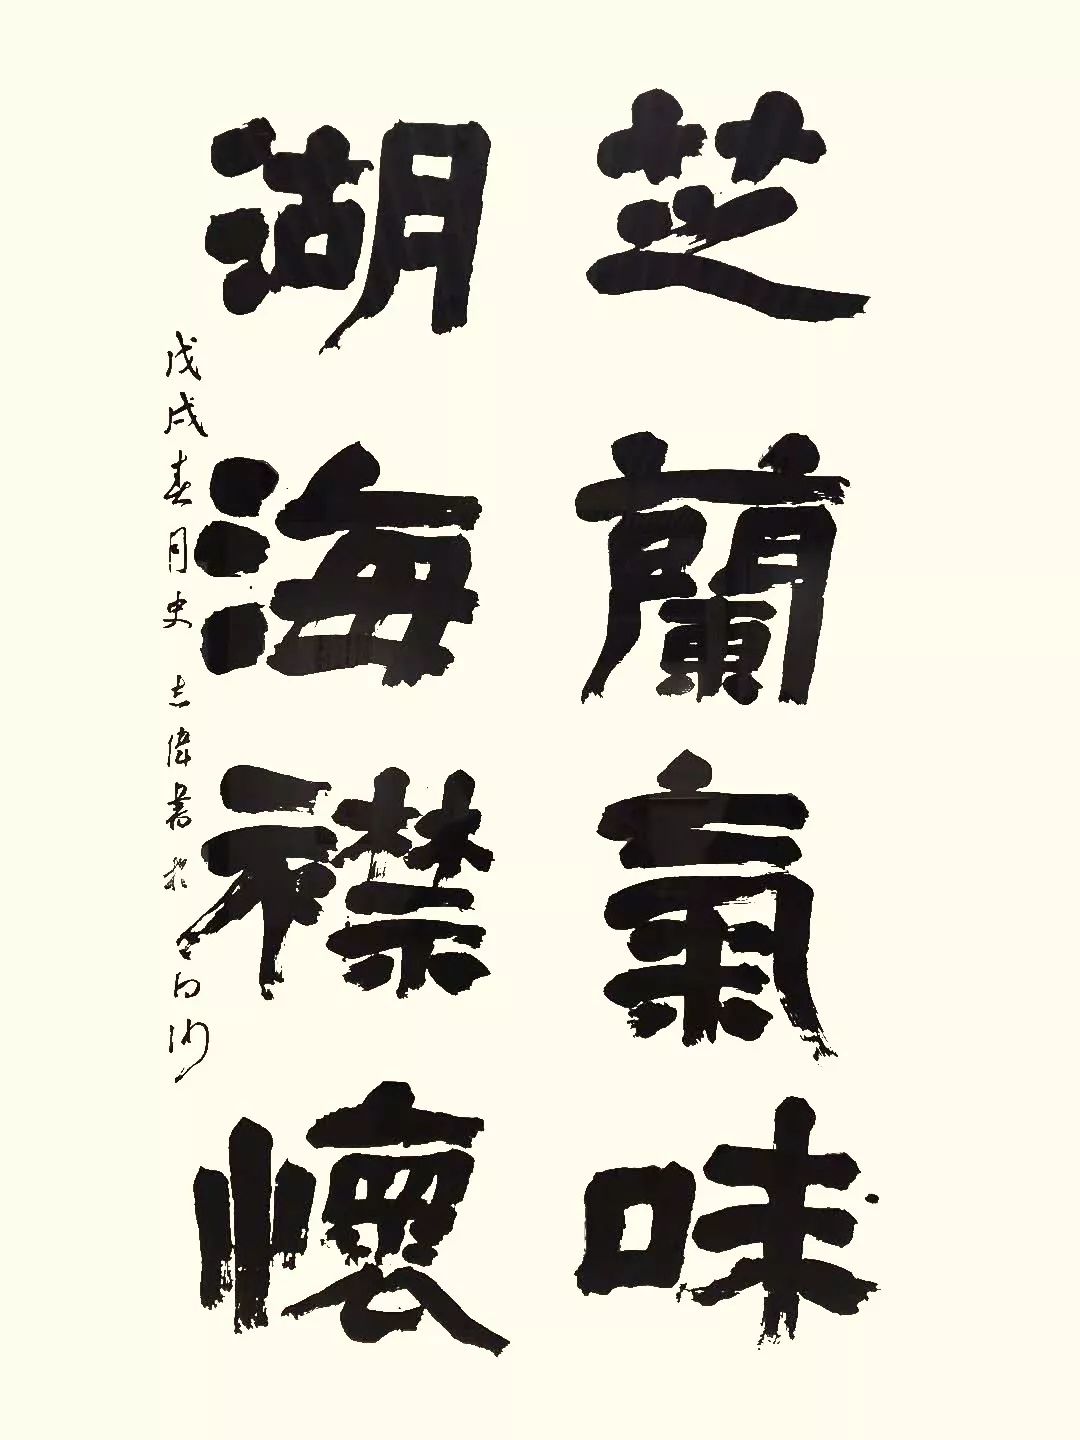 芝蘭氣味
湖海襟懷
戊戌春月史志偉書於白沙